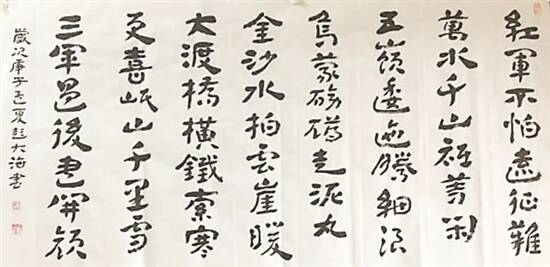 紅軍不怕遠征難
萬水千山祗等閑
五嶺逶迤騰細浪
烏蒙磅礴走泥丸
金沙水拍雲崖暖
大渡橋橫鐵索寒
更喜岷山千里雪
三軍過後盡開顏
歲次庚子夏大海書